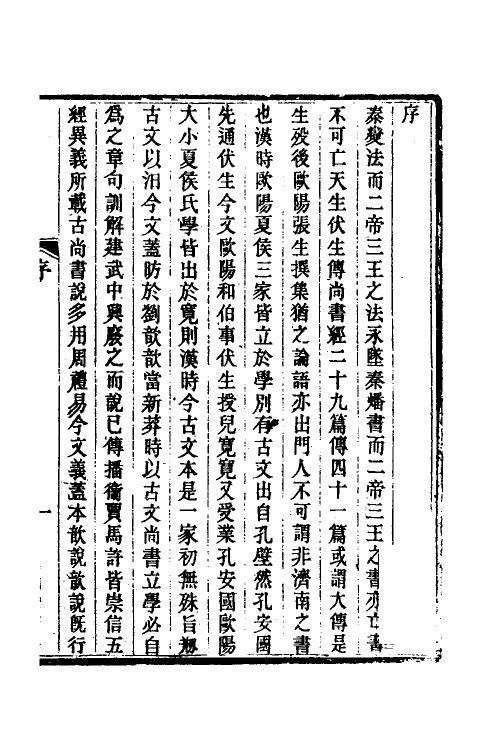 序
秦變法而二帝三王之法永墜秦燔書而二帝三王之書亦亡書
不可亡天生伏生傳尚書經二十九篇傳四十一篇或謂大傳是
生歿後歐陽張生撰集猶之論語亦出門人不可謂非濟南之書
也漢時歐陽夏侯三家皆立於學別有古文出自孔壁然孔安國
先通伏生今文歐陽和伯事伏生授兒寬寬又受業孔安國歐陽
大小夏侯氏學皆出於寬則漢時今古文本是一家初無殊旨剏
古文以汨今文蓋昉於劉歆歆當新莽時以古文尚書立學必自
爲之章句訓解建武中興廢之而說已傳播衞賈馬許皆崇信五
經異義所載古尚書說多用周禮易今文義蓋本歆說歆說旣行
序
一